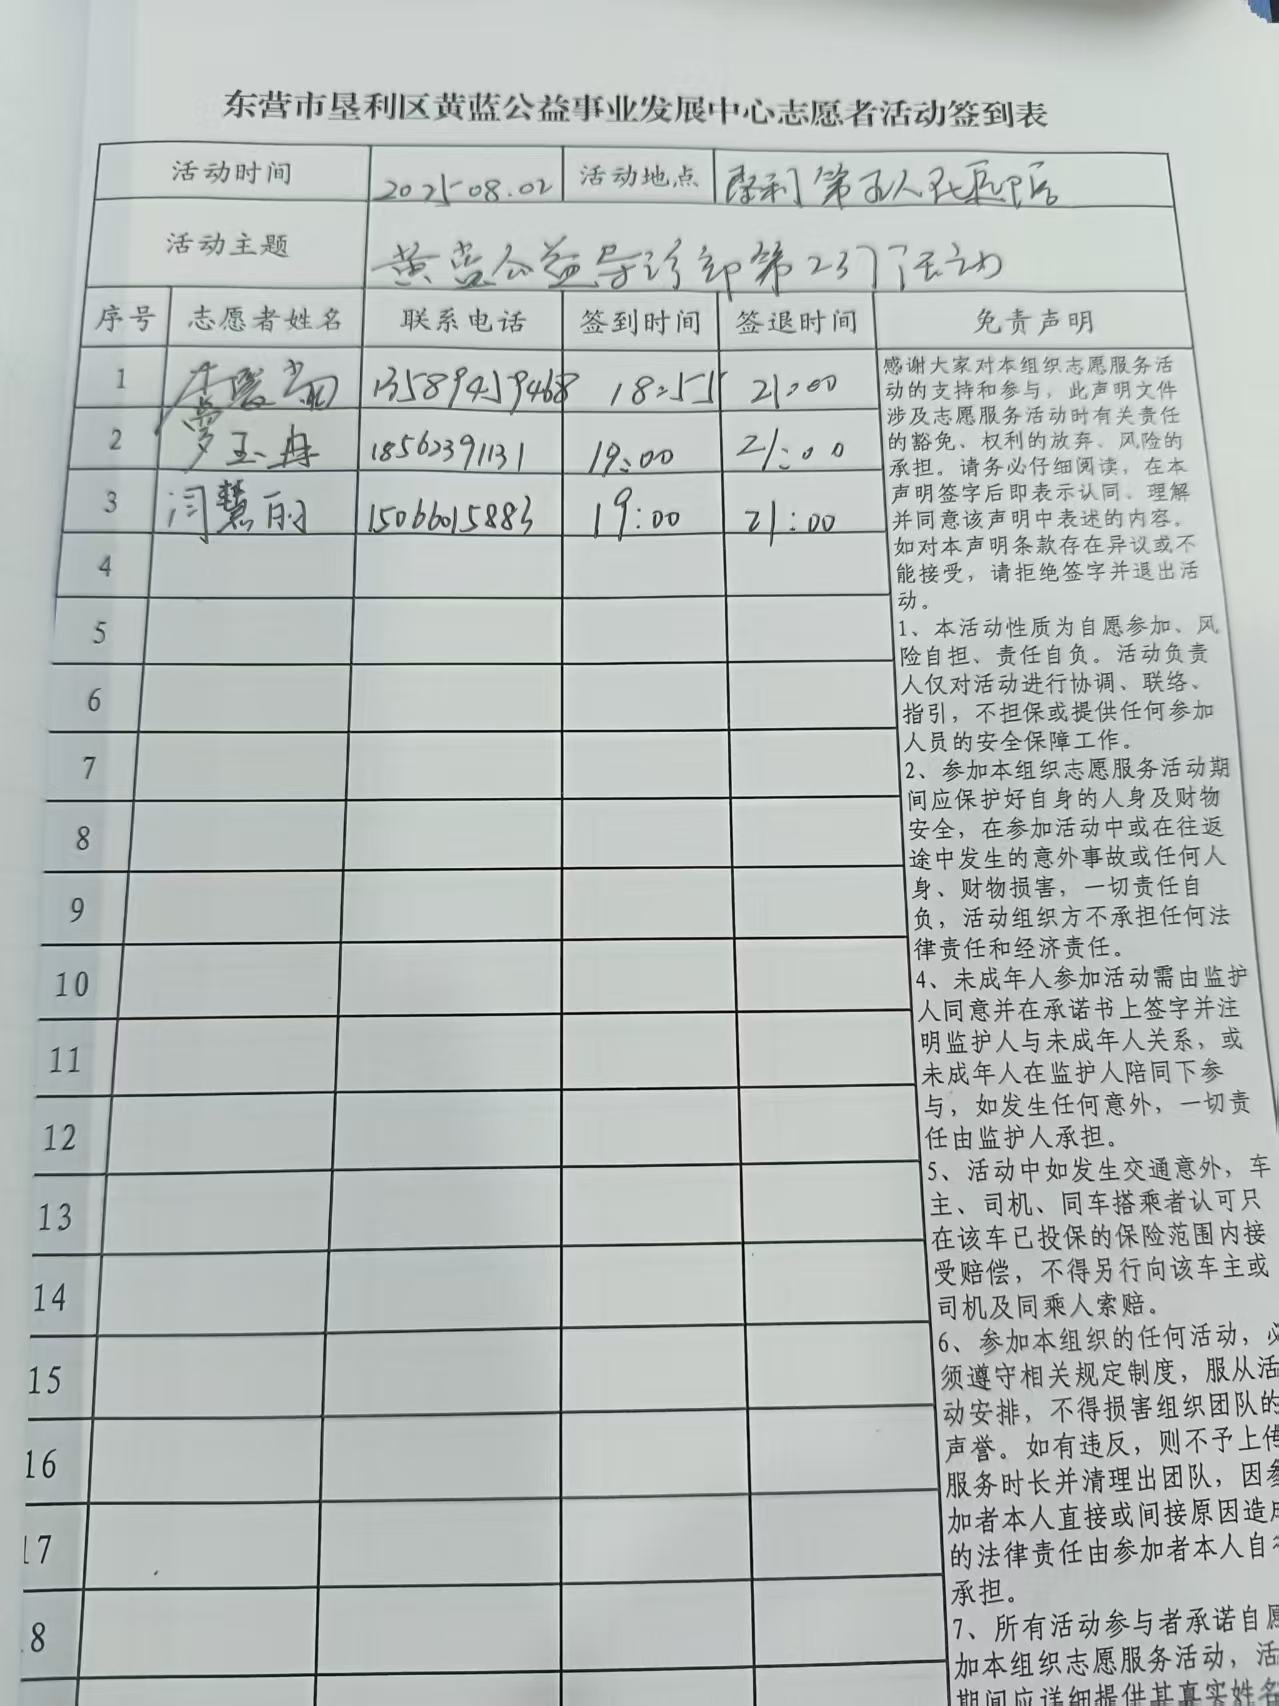 东营市垦利区黄蓝公益事业发展中心志愿者活动签到表
活动时间 2025-08.02 活动地点 垦利第五人民医院
活动主题 黄蓝公益导诊部第237活动
序号 志愿者姓名 联系电话 签到时间 签退时间 免责声明
1 13589459468 18:55 21:00
2 玉 18562391131 19:00 21:00
3 闫慧丽 15066015883 19:00 21:00
4
5
6
7
8
9
10
11
12
13
14
15
16
17
8
感谢大家对本组织志愿服务活
动的支持和参与，此声明文件
涉及志愿服务活动时有关责任
的豁免、权利的放弃、风险的
承担。请务必仔细阅读，在本
声明签字后即表示认同、理解
并同意该声明中表述的内容。
如对本声明条款存在异议或不
能接受，请拒绝签字并退出活
动。
1、本活动性质为自愿参加、风
险自担、责任自负。活动负责
人仅对活动进行协调、联络、
指引，不担保或提供任何参加
人员的安全保障工作。
2、参加本组织志愿服务活动期
间应保护好自身的人身及财物
安全，在参加活动中或在往返
途中发生的意外事故或任何人
身、财物损害，一切责任自
负，活动组织方不承担任何法
律责任和经济责任。
4、未成年人参加活动需由监护
人同意并在承诺书上签字并注
明监护人与未成年人关系，或
未成年人在监护人陪同下参
与，如发生任何意外，一切责
任由监护人承担。
5、活动中如发生交通意外，车
主、司机、同车搭乘者认可只
在该车已投保的保险范围内接
受赔偿，不得另行向该车主或
司机及同乘人索赔。
6、参加本组织的任何活动，必
须遵守相关规定制度，服从活
动安排，不得损害组织团队的
声誉。如有违反，则不予上传
服务时长并清理出团队，因参
加者本人直接或间接原因造成
的法律责任由参加者本人自
承担。
7、所有活动参与者承诺自愿
加本组织志愿服务活动，活
期间应详细提供其真实姓名